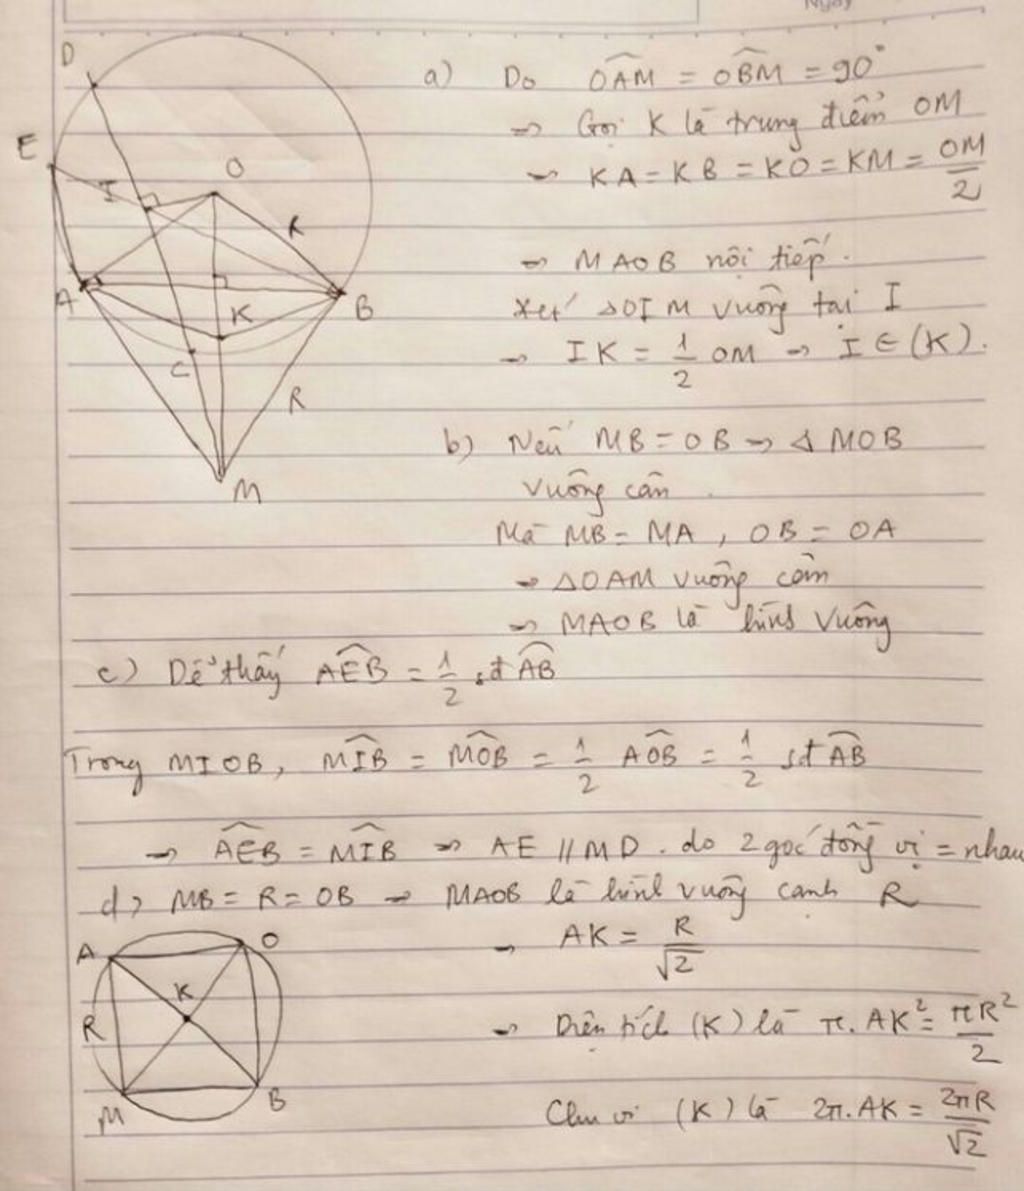 Ngày
D
E
I
O
R
A
K
B
C
R
M
a) Do \widehat{OAM} = \widehat{OBM} = 90°
⇒ Gọi K là trung điểm OM
⇒ KA = KB = KO = KM = \frac{OM}{2}
⇒ MAOB nội tiếp.
Xét ΔOIM vuông tại I
⇒ IK = \frac{1}{2} OM ⇒ I ∈ (K).
b) Nếu MB = OB ⇒ Δ MOB
vuông cân.
Mà MB = MA, OB = OA
⇒ ΔOAM vuông cân
⇒ MAOB là hình vuông
c) Dễ thấy \widehat{AEB} = \frac{1}{2} sđ \widehat{AB}
Trong MIOB, \widehat{MIB} = \widehat{MOB} = \frac{1}{2} \widehat{AOB} = \frac{1}{2} sđ \widehat{AB}
⇒ \widehat{AEB} = \widehat{MIB} ⇒ AE // MD. do 2 góc đồng vị = nhau
d) MB = R = OB ⇒ MAOB là hình vuông cạnh R
⇒ AK = \frac{R}{\sqrt{2}}
⇒ Diện tích (K) là π. AK² = \frac{πR²}{2}
Chu vi (K) là 2π. AK = \frac{2πR}{\sqrt{2}}
A
O
K
R
M
B